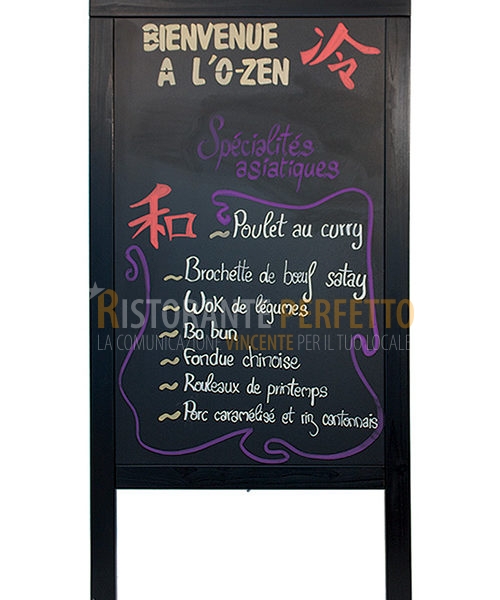 BIENVENUE
A L'O-ZEN
冷
Spécialités
asiatiques
和
~Poulet au curry
~Brochette de bœuf satay
Wok de légumes
~Bo bun
~Fondue chinoise
~Rouleaux de printemps
~Porc caramélisé et riz cantonnais
RISTORANTE PERFETTO
LA COMUNICAZIONE VINCENTE PER IL TUO LOCALE